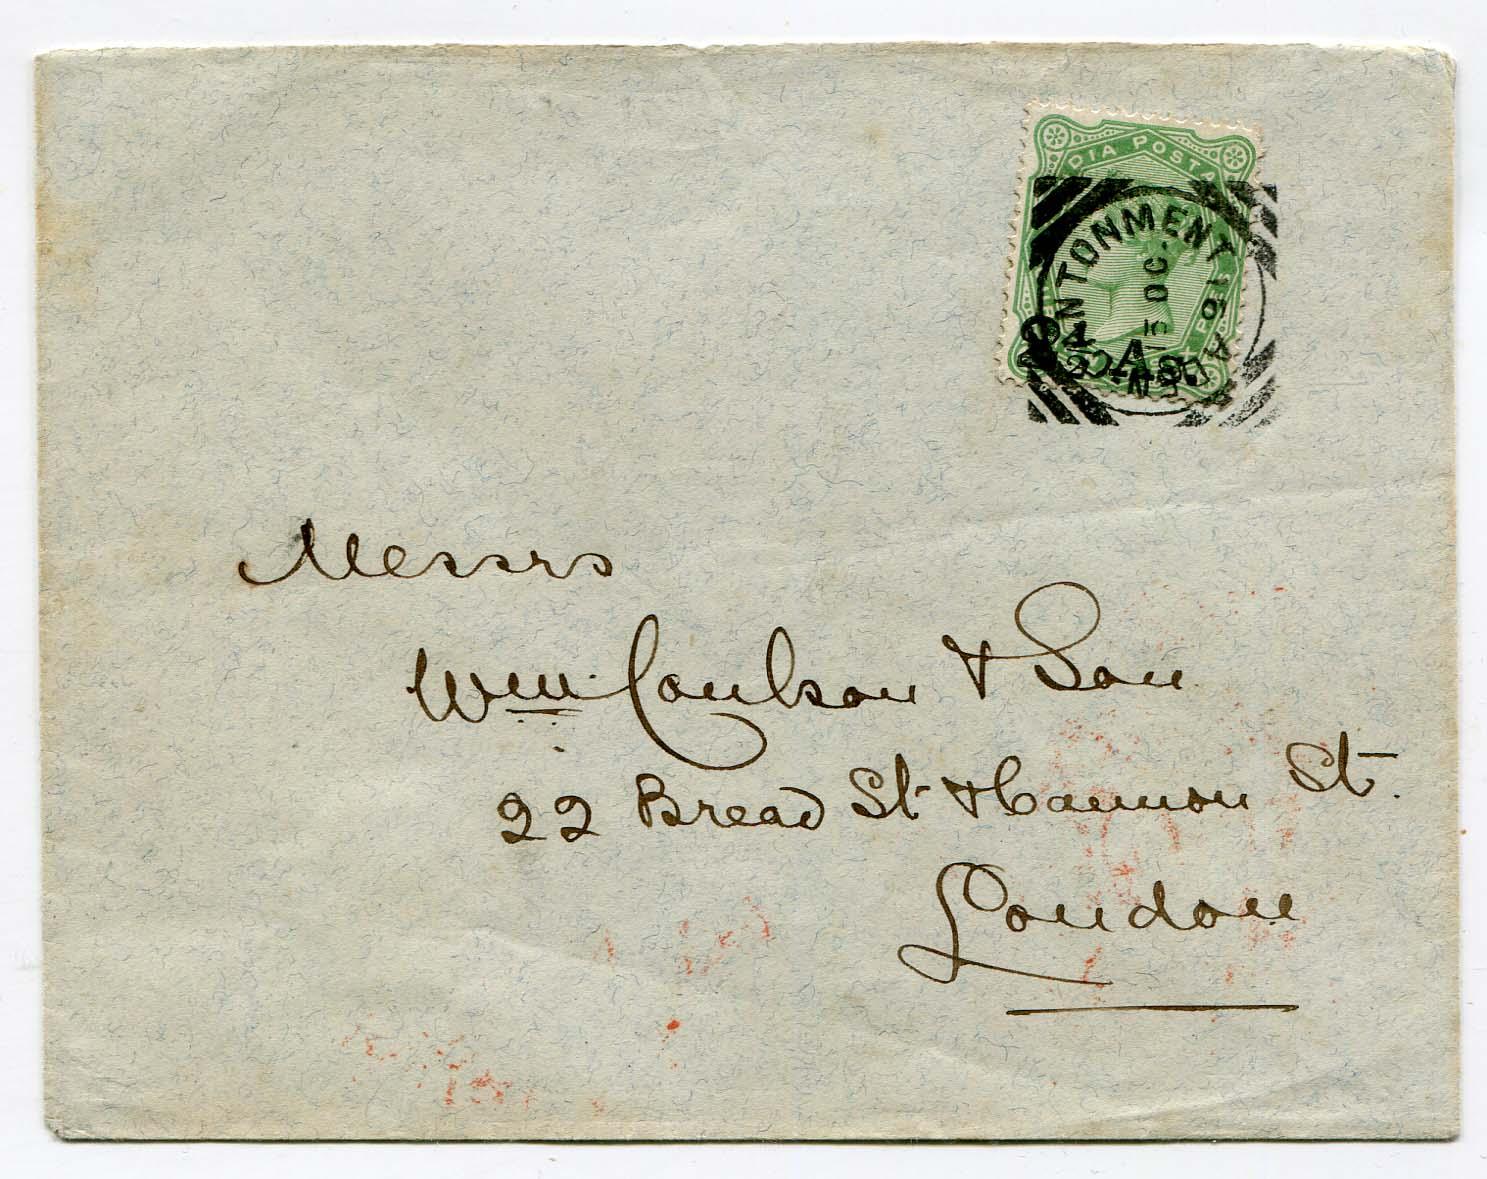 DIA POSTA
CANTONMENT
15 DC. 91
ADEN
2½ AS.
Messrs
Wm Coulson & Son
22 Bread St & Cannon St.
London